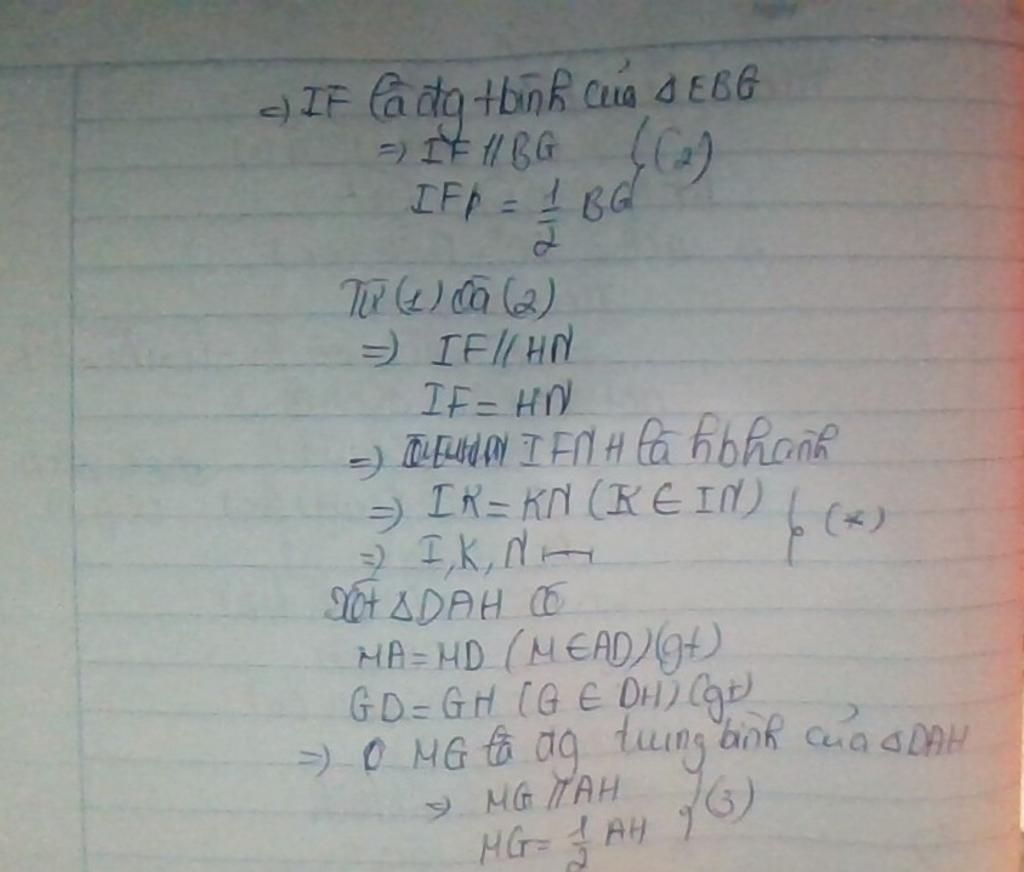 =) IF là đg tbình của ΔEBG
=) IF // BG } (2)
IF = 1/2 BG
Từ (1) và (2)
=) IF // HN
IF = HN
=) IFNH là hbhành
=) IK = KN (K ∈ IN) } (*)
=) I, K, N
Xét ΔDAH có
MA = MD (M ∈ AD) (gt)
GD = GH (G ∈ DH) (gt)
=) MG là đg trung bình của ΔDAH
=) MG // AH } (3)
MG = 1/2 AH